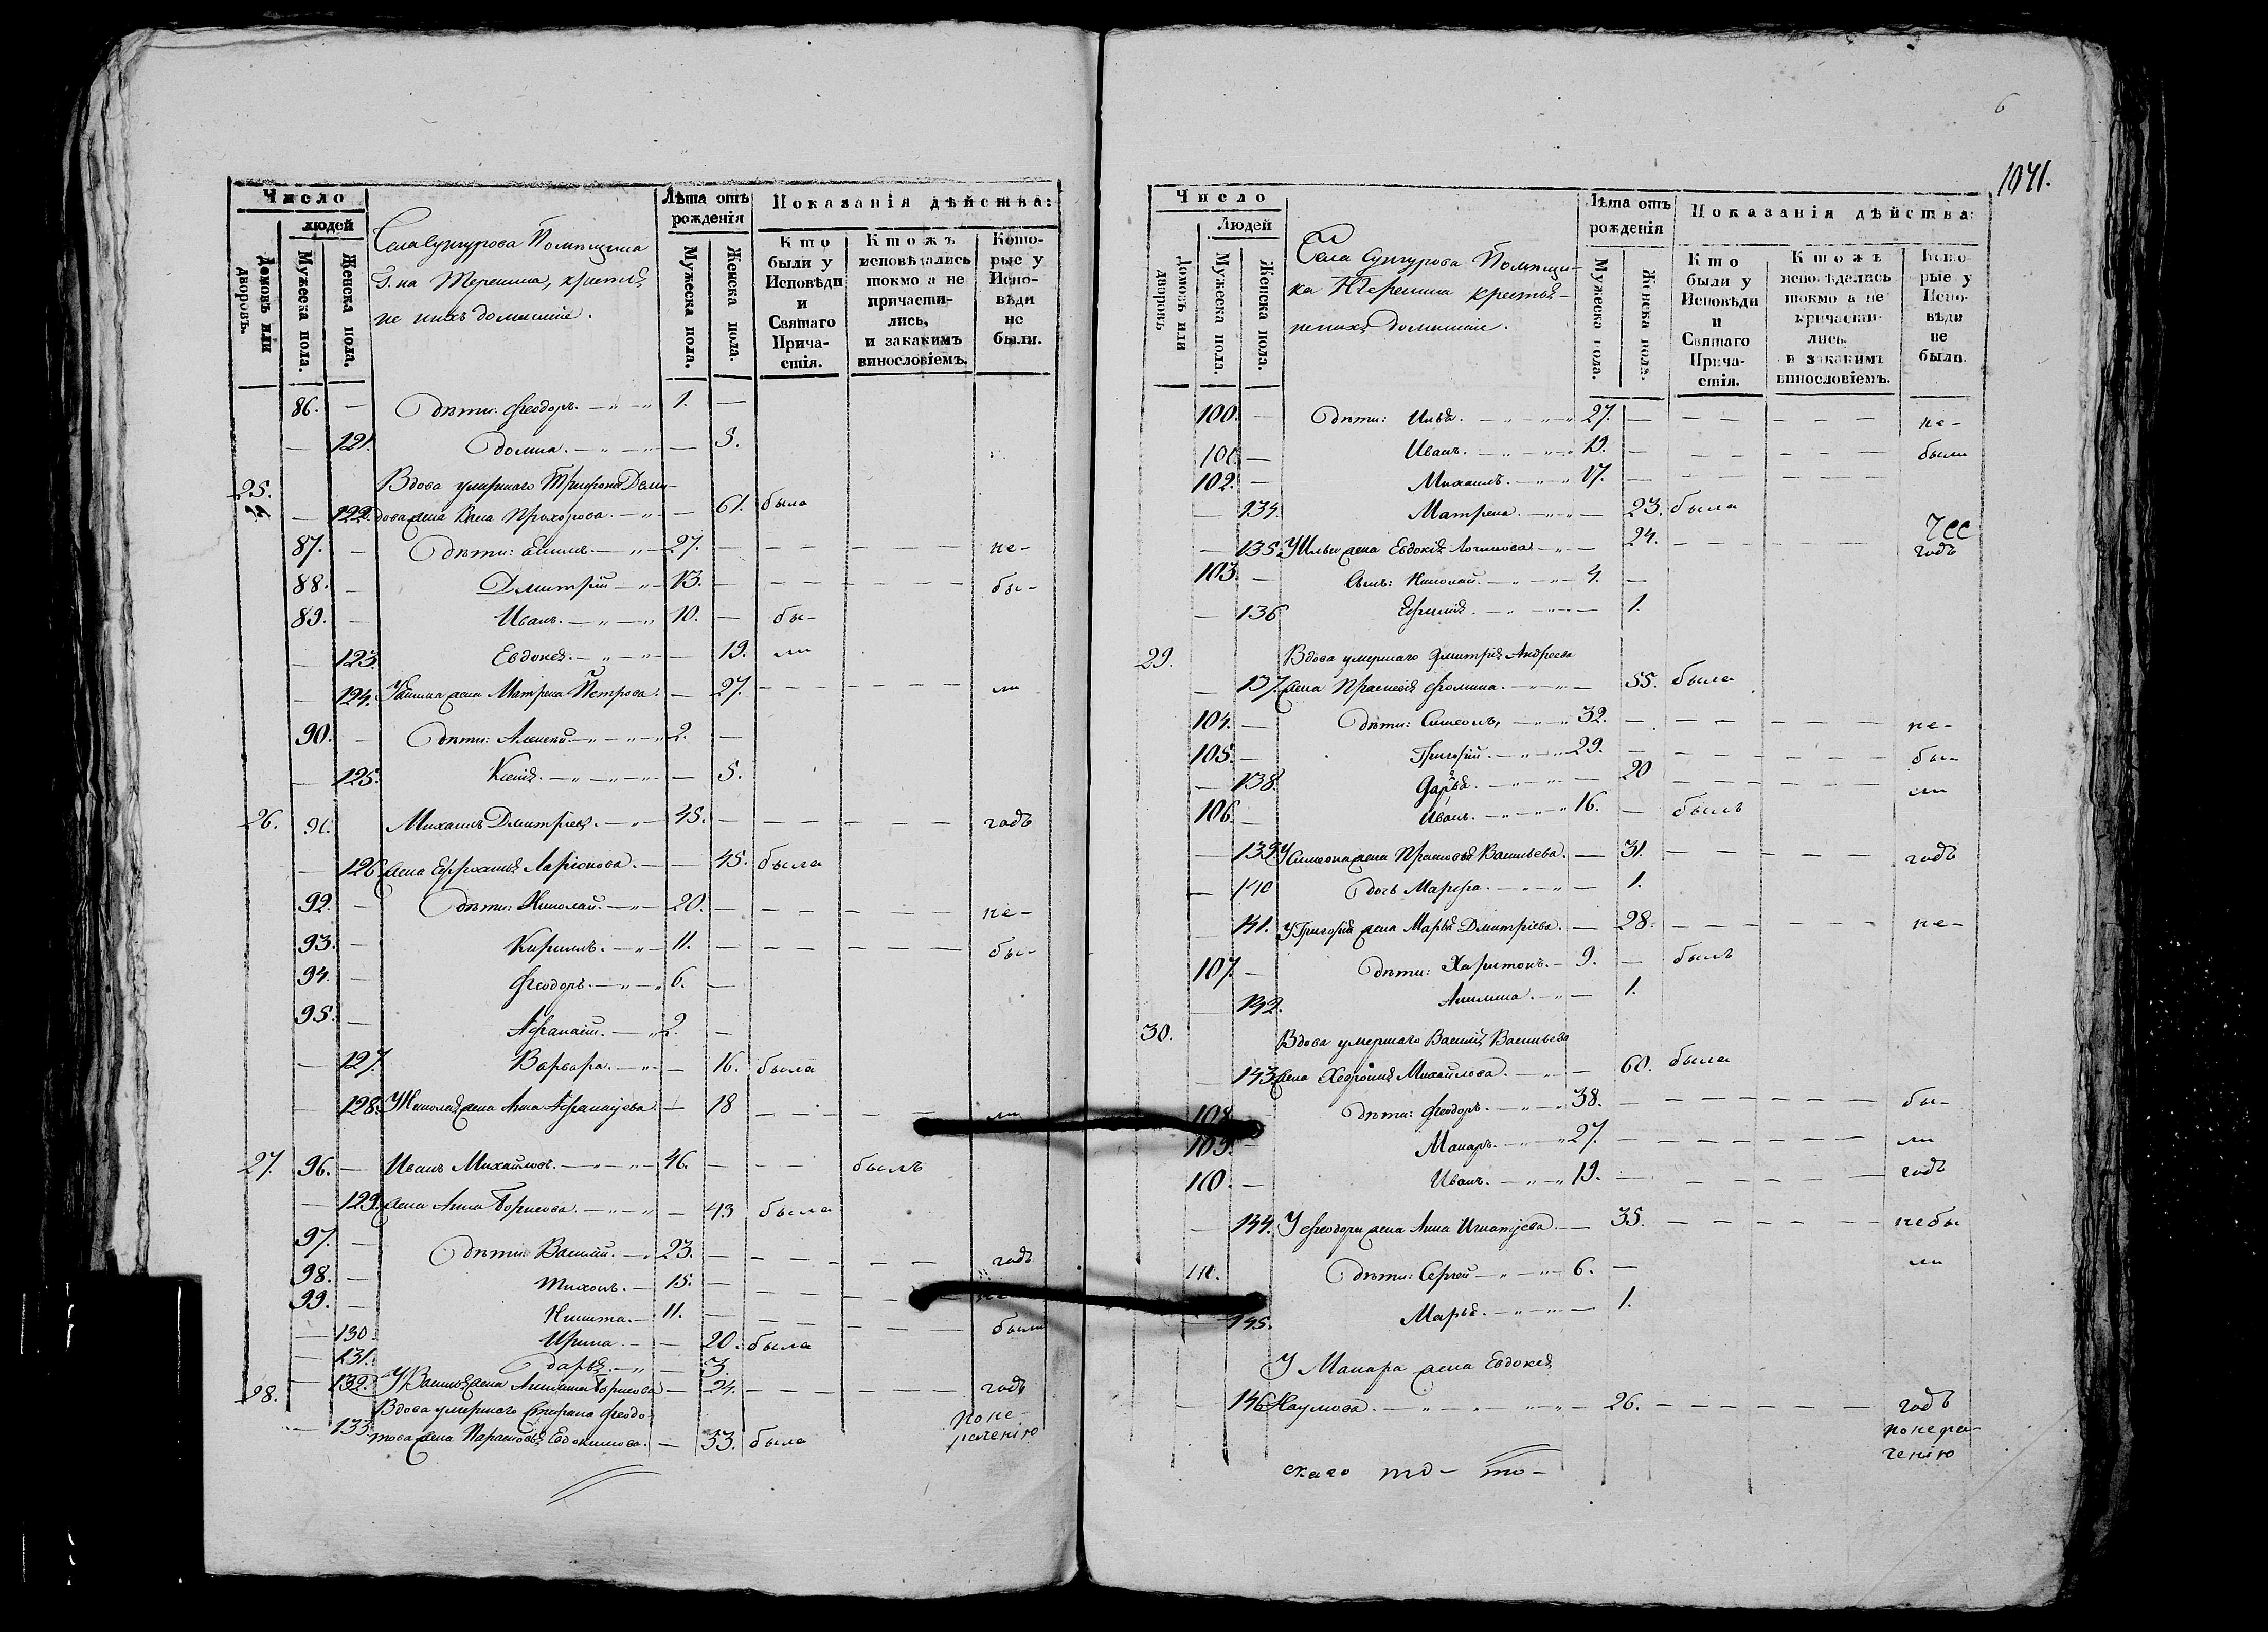 Число
людей
Домовъ или дворовъ.
Мужеска пола.
Женска пола.
Села Сунгурова Помѣщика
Г. на Терешина, крестья
не ихъ домашніе.
Лѣта отъ рожденія
Мужеска пола.
Женска пола.
Показанія дѣйства:
Кто были у Исповѣди и Святаго Прича- стія.
Ктожъ исповѣдались токмо а не причасти- лись, и закакимъ винословіемъ.
Кото- рые у Испо- вѣди не были.
86. — Дѣти: Феодоръ. — 1. —
— 121. Домна. — — 5.
25. Вдова умершаго Трифона Деми-
— 122. дова жена Прохорова. — — 61. была
87. — Дѣти: — 27. — — — — не-
88. — Дмитрій — 13. — — — — бы-
89. — Иванъ. — 10. — бы-
— 123. Евдокея. — — 19. ли
— 124. жена Матрена Петрова. — 27. — — — ли
90. — Дѣти: Алексей. — 2. —
— 125. Ксенія. — — 5.
26. 91. Михаилъ Дмитріевъ. — 45. — — — — годъ
— 126. жена Ефросинья Ларіонова. — — 45. была
92. — Дѣти: Николай. — 20. — — — — не-
93. — Кирилъ. — 11. — — — — бы-
94. — Феодоръ. — 6. —
95. — Афанасій. — 2. —
— 127. Варвара. — — 16. была
— 128. У Николая жена Анна Афанасьева. — 18 — — — ли
27. 96. — Иванъ Михайловъ. — 46. — — былъ
— 129. жена Анна Борисова. — — 43 была
97. — Дѣти: Василій. — 23. — — — — годъ
98. — Тихонъ. — 15. — — — — не
99. — Никита. — 11. — — — — были
— 130. Ирина — — 20. была
— 131. Дарья. — — 3.
— 132. У Василья жена Борисова — 24. — — — годъ
28. Вдова умершаго Стефана Федо-
— 133. това жена Парасковья Евдокимова. — 53. была
по не-
раченію
6
1041.
Число
Людей
Домовъ или дворовъ
Мужеска пола.
Женска пола.
Села Сунгурова Помѣщи-
ка Н Терешина крестья-
не ихъ домашніе.
Лѣта отъ рожденія
Мужеска пола.
Женска пола.
Показанія дѣйства:
Кто были у Исповѣди и Святаго Прича- стія.
Ктожъ исповѣдались токмо а не причасти- лись, и закакимъ винословіемъ.
Кото- рые у Испо- вѣди не были.
100. — Дѣти: Илья. — 27. — — — — не-
101. — Иванъ. — 19. — — — — были
102. — Михаилъ. — 17. — — — —
— 134. Матрена. — — 23. была
— 135. У Ильи жена Евдокія Логинова — — 24. — — — годъ
103. — Сынъ: Николай. — 4. —
— 136 — — 1.
29. Вдова умершаго Дмитрія Андреева
— 137. жена Прасковія Фомина. — — 55. была
104. — Дѣти: Симеонъ, — 32. — — — — не-
105. — Григорій. — 29. — — — — бы-
— 138. Дарья. — — 20 — — — ли
106. — Иванъ. — 16. — былъ
— 139. У Симеона жена Прасковья Васильева. — 31. — — — годъ
— 140 дочь Марфа. — — 1.
— 141. У Григорія жена Марья Дмитріева. — 28. — — — не-
107. — Дѣти: Харитонъ. — 9. — былъ
— 142. Акилина. — — 1.
30. Вдова умершаго Василія Васильева
— 143. жена Михайлова. — — 60. была
108. — Дѣти: Феодоръ. — 38. — — — — бы-
109. — Макаръ. — 27. — — — — ли
110. — Иванъ. — 19. — — — — годъ
— 144. У Феодора жена Анна Игнатьева. — 35. — — — не бы
111. Дѣти: Сергей — 6. — ли
145. Марья. — — 1.
У Макара жена Евдокея
— 146 Наумова. — — 26. — — — годъ
по нера-
ченію
скаго то- то-